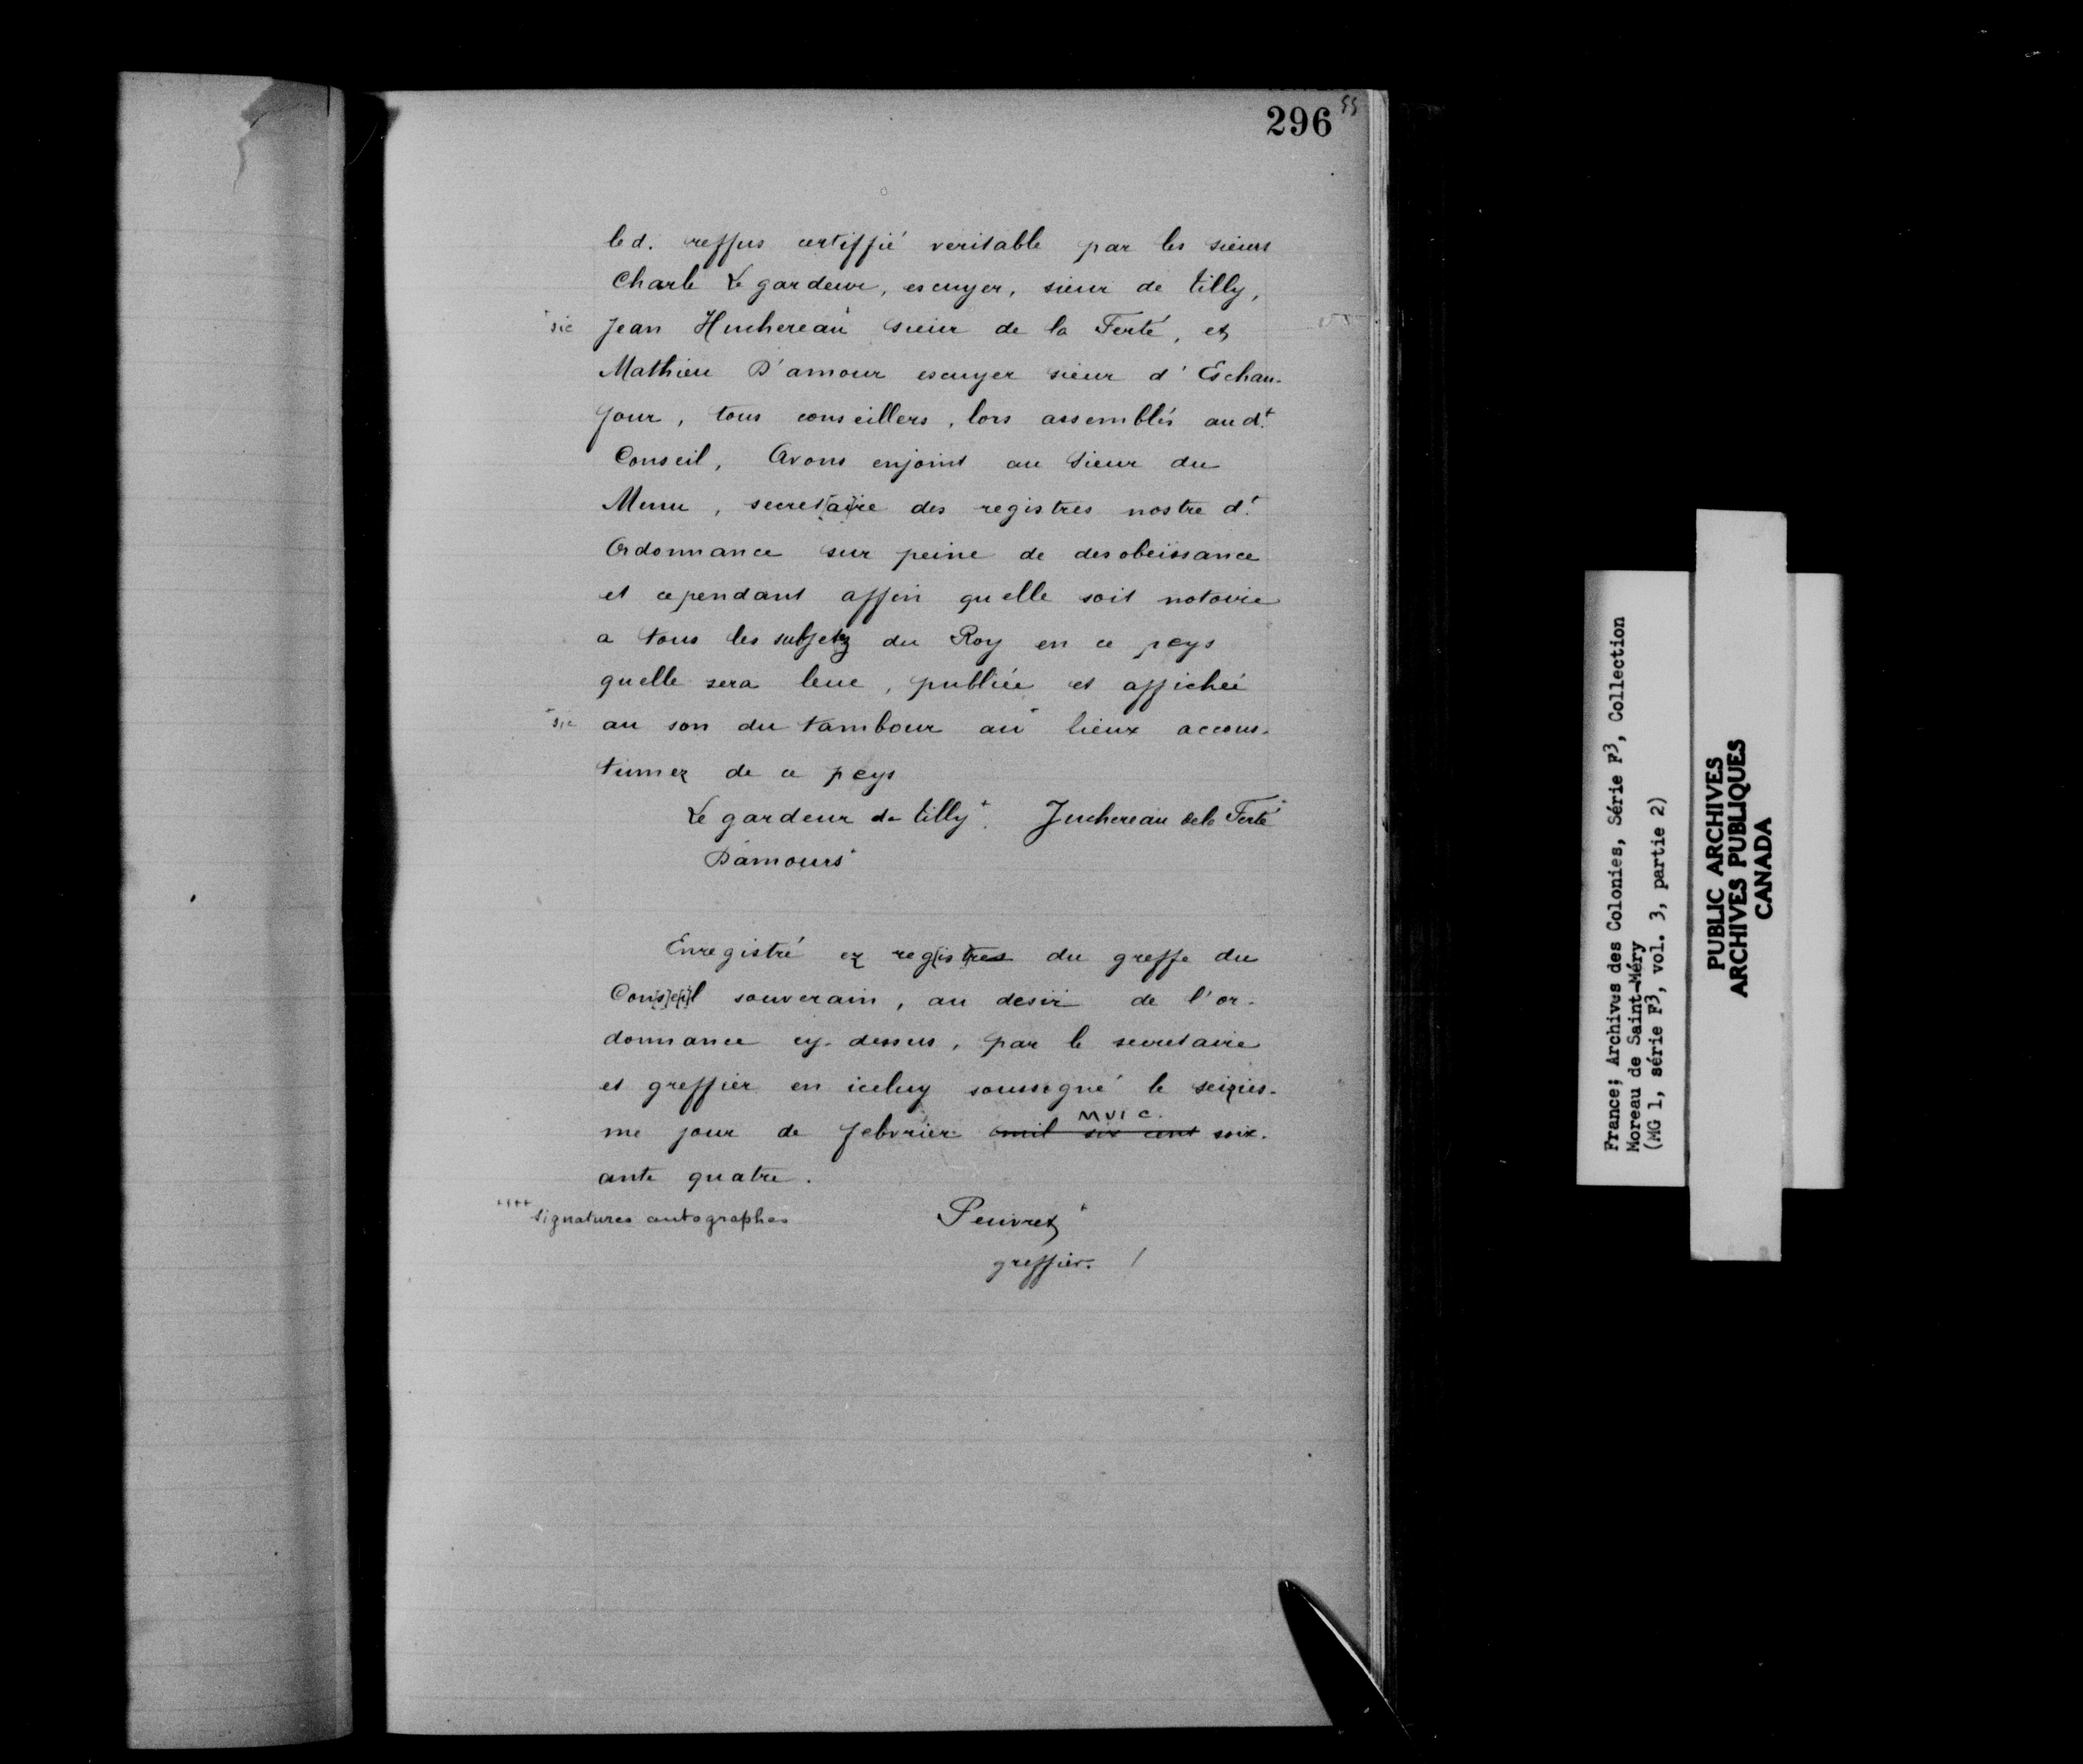 296 55
led. reffus certiffié veritable par les sieurs
Charle Le gardeur, escuyer, sieur de tilly,
+sic Jean Huchereau+ sieur de la Ferté, et
Mathieu D'amour escuyer sieur d'Eschau-
four, tous conseillers, lors assemblés aud.t
Conseil, Avons enjoint au Sieur du
Mesnu, secretaire des registres nostre d.t
Ordonnance sur peine de desobeissance
et cependant affin quelle soit notoire
a tous les subjetz du Roy en ce peys
quelle sera leue, publiée et affichée
+sic au son du tambour au+ lieux accous-
tumez de ce peys
Le gardeur de tilly+. Juchereau dela Ferté+
Damours+
Enregistré ez registres du greffe du
Conseil souverain, au desir de l'or-
donnance cy-dessus, par le secretaire
et greffier en iceluy soussigné le seizies-
MVI C.
me jour de febvrier mil six cent soix-
ante quatre.
++++ signatures autographes Peuvret+
greffier. /
France; Archives des Colonies, Série F3, Collection
Moreau de Saint-Méry
(MG 1, série F3, vol. 3, partie 2)
PUBLIC ARCHIVES
ARCHIVES PUBLIQUES
CANADA